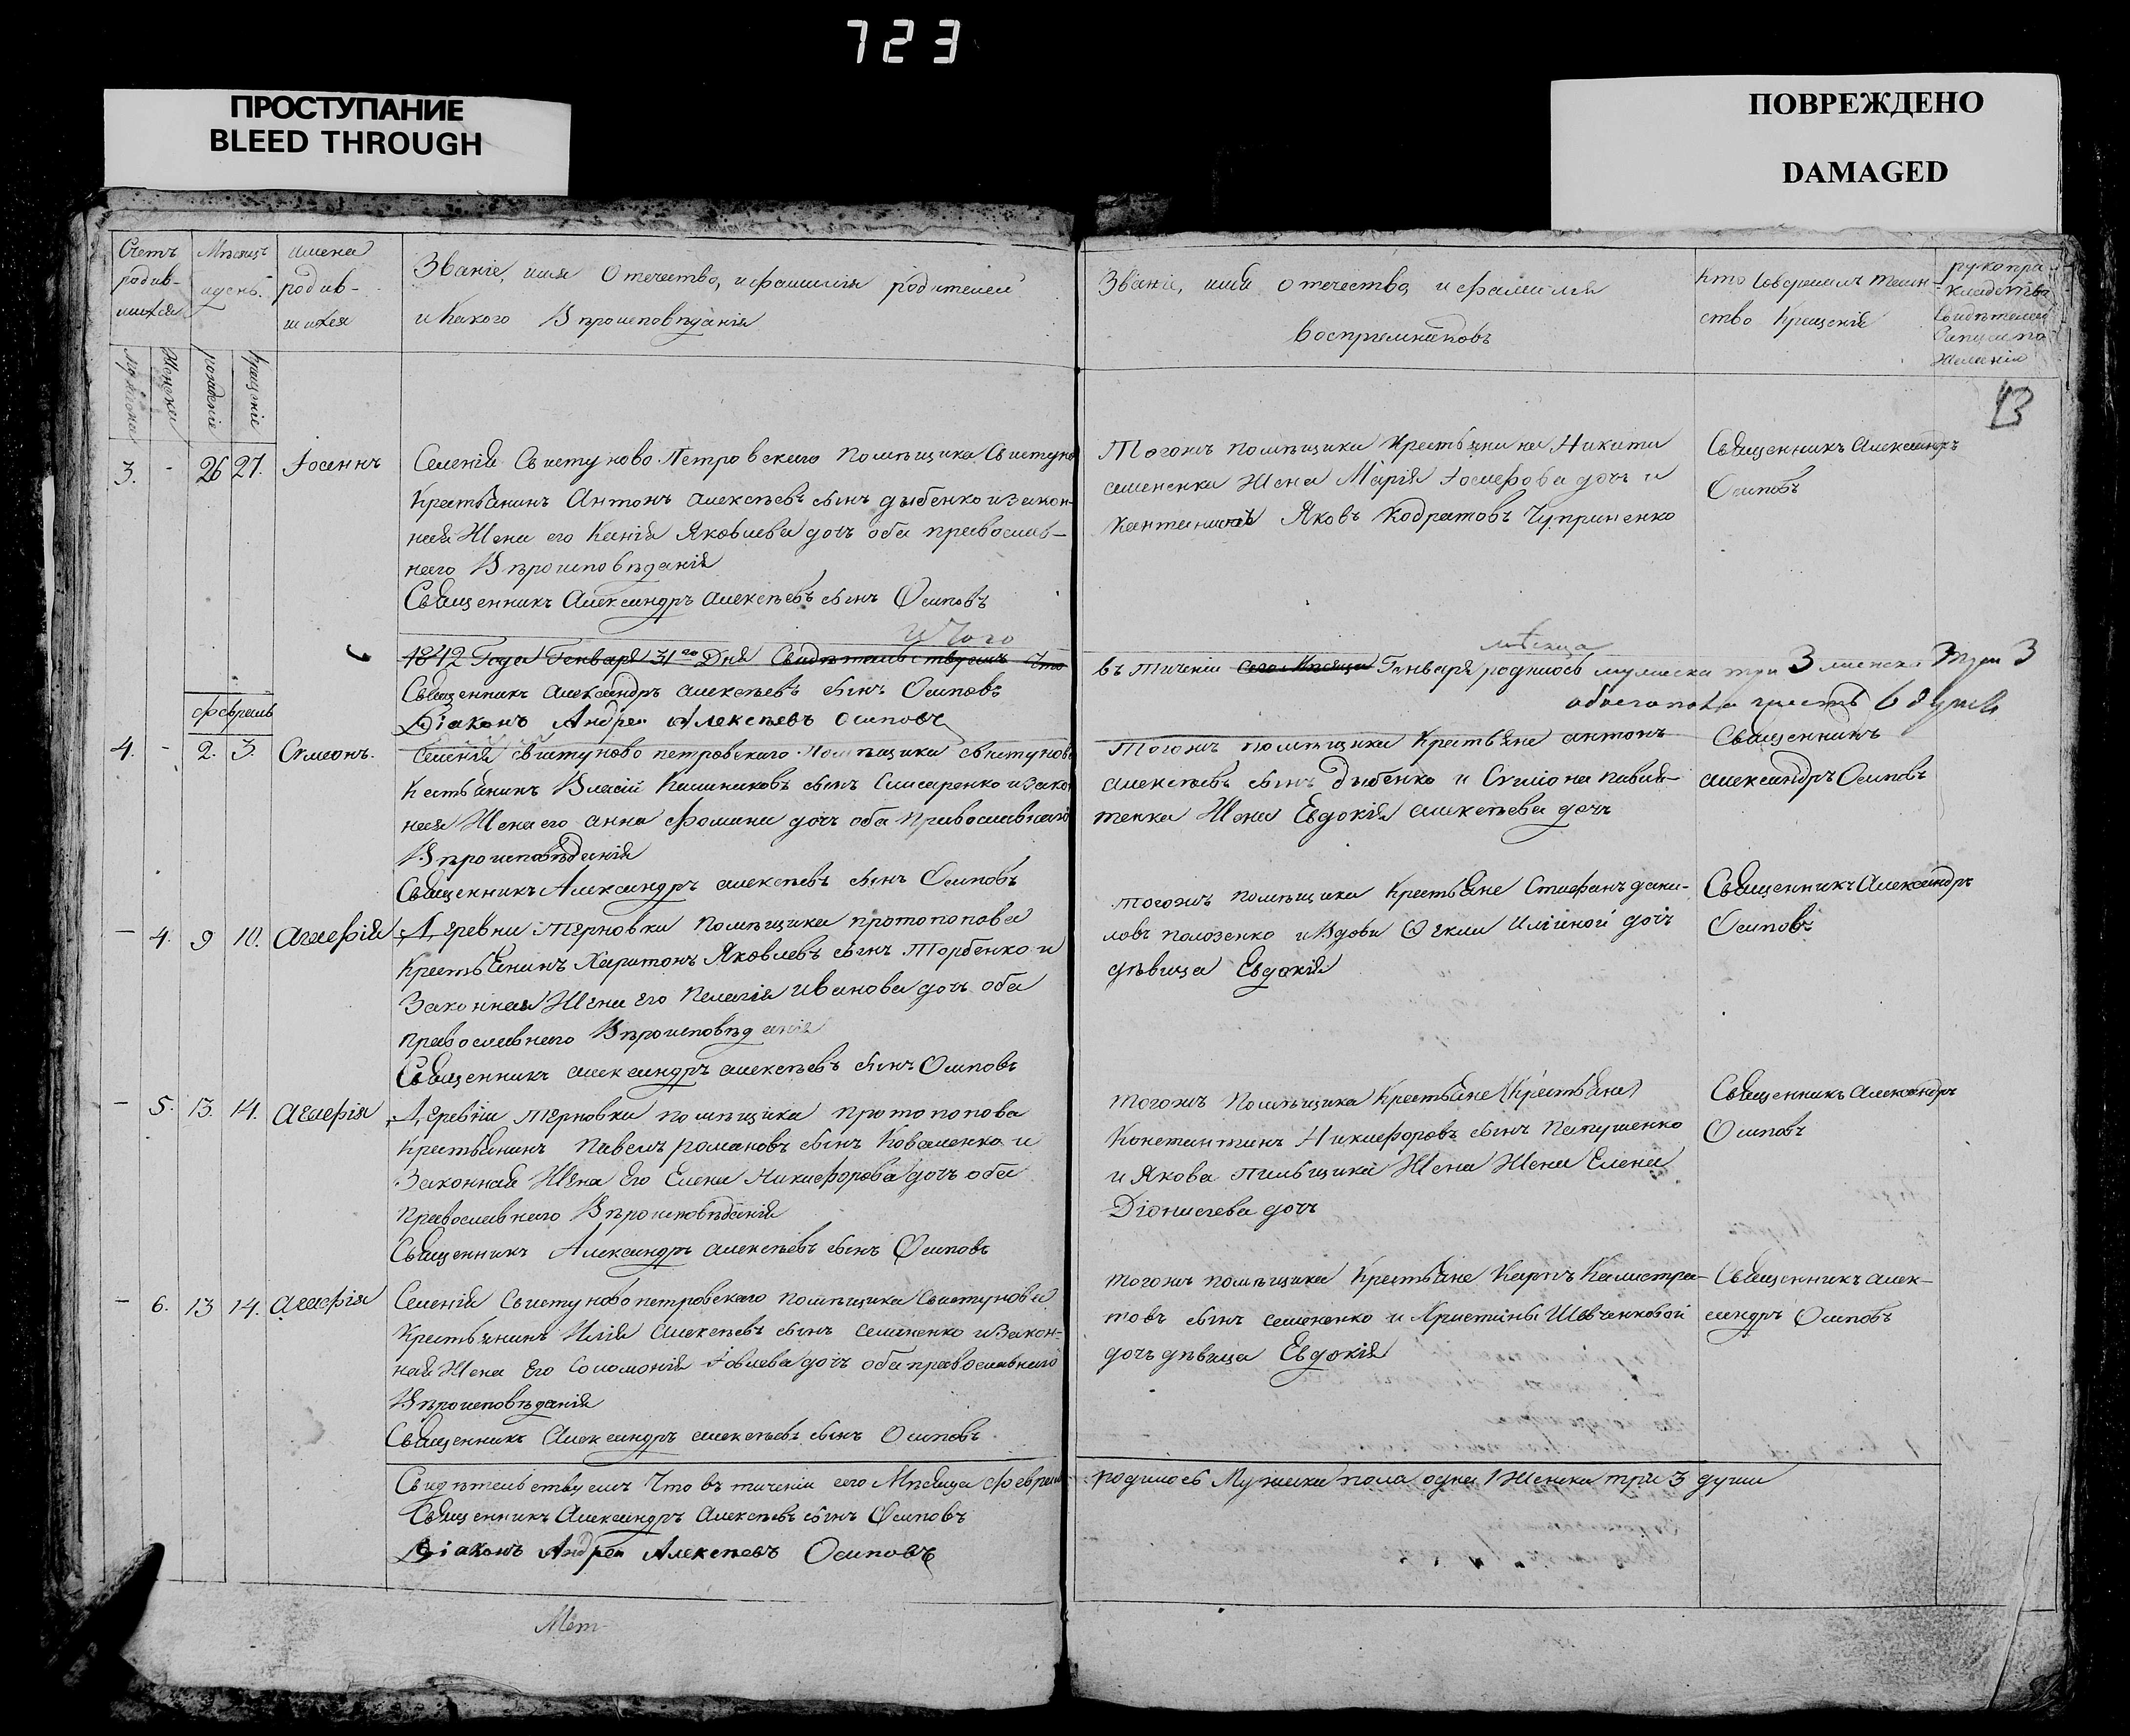 723
ПРОСТУПАНИЕ
BLEED THROUGH
ПОВРЕЖДЕНО
DAMAGED
Счетъ родив-шихся
Мѣсяцъ и день.
имена родив-шихся
Званіе, имя Отечество, и фамилія родителей
и Какого Вѣроисповѣданія
Званіе, имя отечество, и фамилія
воспріемниковъ
кто Совершалъ таин-
ство Крещенія
рукопри-
кладства
Свидѣтелей
записи по
Желанію
Мужеска
Женска
рожденіе
крещеніе
13
3. - 26 27. Іосифъ
Селенія Свистуново Петровскаго Помѣщика Свистуно
Крестьянинъ Антонъ алексѣевъ сынъ дыбенко и закон-
ная Жена его Ксенія Яковлева дочь оба православ-
наго Вѣроисповѣданія
Священникъ Александръ алексѣевъ сынъ Осиповъ
Тогожъ помѣщика Крестьянина Никити
семененка Жена Марія Іосифова дочь и
Яковъ Кодратовъ Чуприненко
Священникъ Александръ
Осиповъ
Итого
1842 Года Генваря 31го Дня Свидѣтельствуемъ Что
Священникъ александръ алексѣевъ сынъ Осиповъ
Діаконъ Андрей Алексѣевъ осиповъ
мѣсяца
въ теченіи сего Мѣсяца Генваря родилось мужеска три 3 женска три 3
обоего пола шесть 6 душъ
февраль
4. - 2. 3. Симеонъ.
Селенія свистуново петровскаго Помѣщика свистунова
Кестьянинъ Власій Калиниковъ сынъ Слисаренко и зако
ная Жена его анна фомина дочь оба православнаго
Вѣроисповѣданія
Священникъ Александръ алексѣевъ сынъ Осиповъ
Тогожъ помѣщика Крестьяне антонъ
алексѣевъ сынъ дыбенко и Симіона павлі-
тенка Жена Евдокія алексѣева дочь
Священникъ
александръ Осиповъ
- 4. 9 10. Агафія
Деревни Терновки помѣщика протопопова
Крестьянинъ Харитонъ Яковлевъ сынъ Торбенко и
Законная Жена его Пелагія Иванова дочь оба
православнаго Вѣроисповѣданія
Священникъ александръ алексѣевъ сынъ Осиповъ
тогожъ помѣщика Крестьяне Стефанъ дани-
ловъ полозенко и Вдови Ѳекли Иліиной дочь
дѣвица Евдокія
Священникъ Александръ
Осиповъ
- 5. 13. 14. Агафія
Деревни Терновки помѣщика протопопова
Крестьянинъ Павелъ романовъ сынъ Коваленко и
Законная Жена Его Елена Никифорова дочь оба
Православнаго Вѣроисповѣданія
Священникъ Александръ алексѣевъ сынъ Осиповъ
тогожъ Помѣщика Крестьяне (Крестьяне)
Констинтинъ Никифоровъ сынъ Папушенко
и Якова пильщика Жена Жена Елена
Діонисіева дочь
Священникъ Александръ
Осиповъ
- 6. 13 14. Агафія
Селенія Свистуново петровскаго помѣщика Свистунова
Крестьянинъ Илія Алексѣевъ сынъ семененко и Закон-
ная Жена Его Соломонія Іовлева дочь оба православнаго
Вѣроисповѣданія
Священникъ Александръ алексѣевъ сынъ Осиповъ
тогожъ помѣщика Крестьяне Карпъ Калистра-
товъ сынъ семененко и Христины Шевченковой
дочь дѣвица Евдокія
Священникъ алек-
сандръ Осиповъ
Свидѣтельствуемъ Что въ теченіи сего Мѣсяца февраля
родилось Мужеска пола одна 1 Женска три 3 души
Священникъ Александръ Алексѣевъ сынъ Осиповъ
Діаконъ Андрей Алексѣевъ Осиповъ
Мет